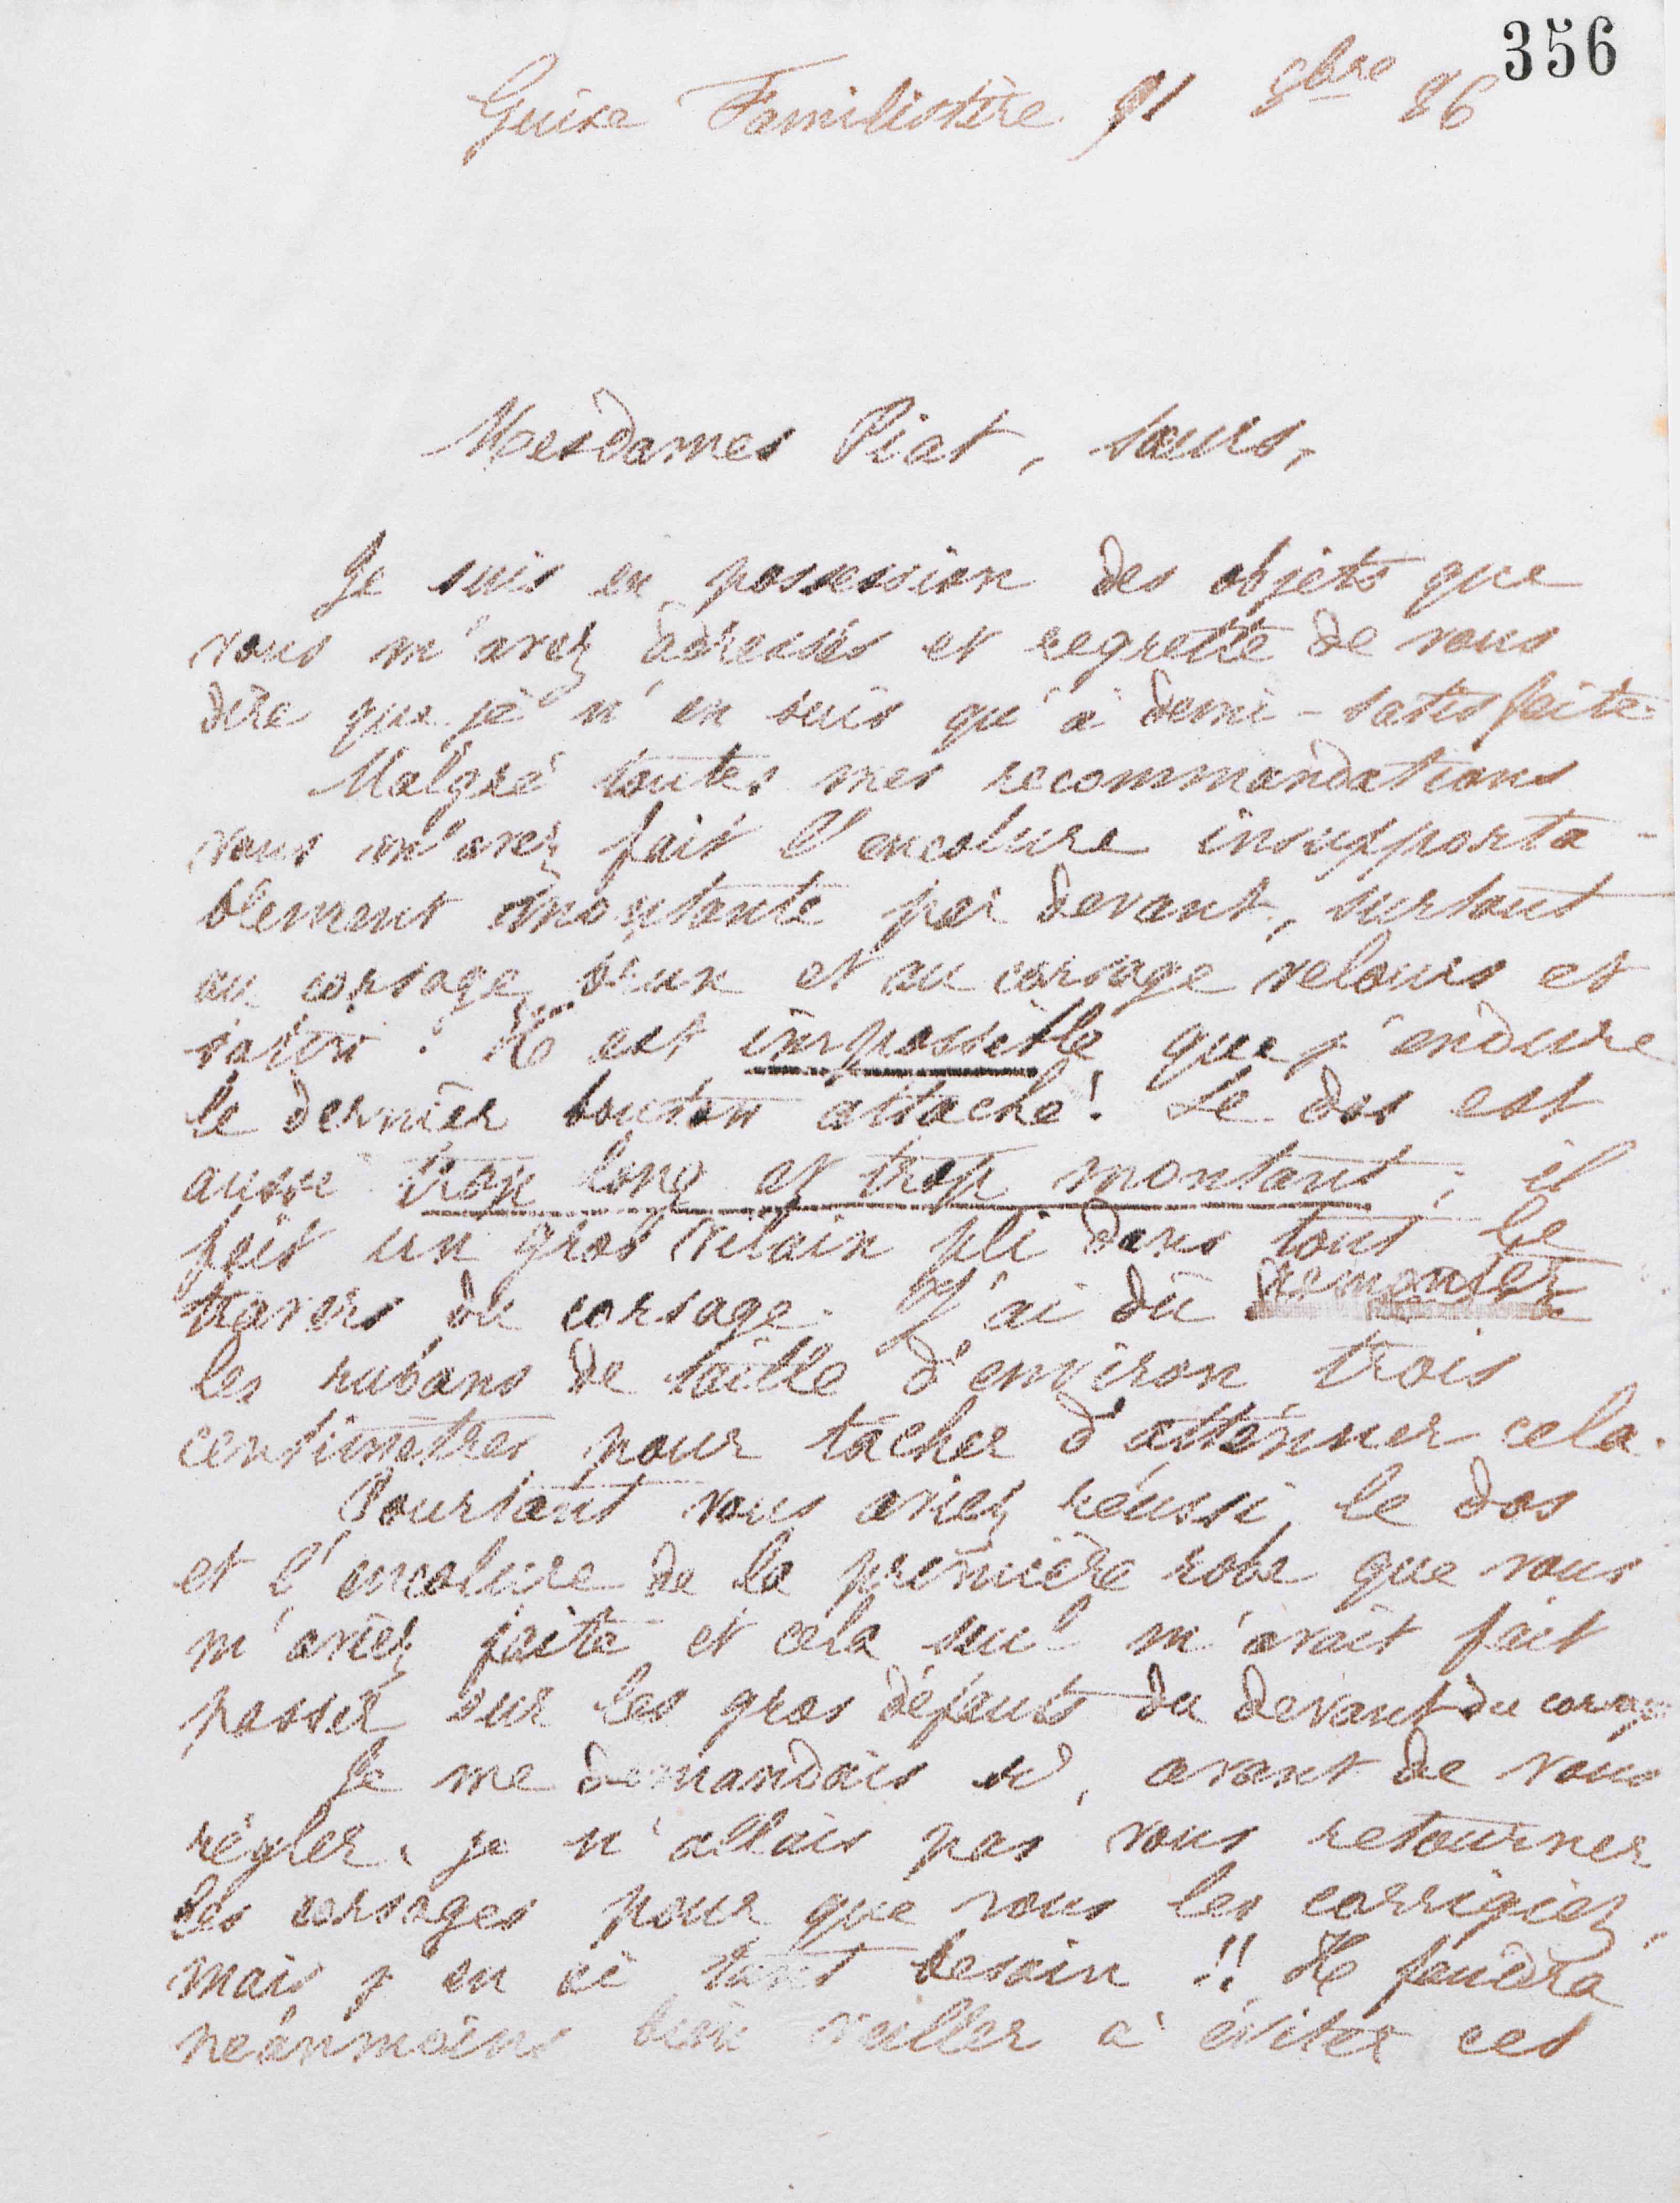 356
Guise Familistère 91 8bre 86
Mesdames Piat, sœurs,
Je suis en possession des objets que
vous m'avez adressés et regrette de vous
dire que je n'en suis qu'à demi-satisfaite.
Malgré toutes mes recommandations
vous m'avez fait l'encolure insupporta-
blement montante par devant, surtout
au corsage brun et au corsage velours et
satin. Il est impossible que j'endure
le dernier bouton attaché! Le dos est
aussi trop long et trop montant; il
fait un gros vilain pli dans tout le
travers du corsage. J'ai dû remonter
les rubans de taille d'environ trois
centimètres pour tâcher d'atténuer cela.
Pourtant vous aviez réussi le dos
et l'encolure de la première robe que vous
m'aviez faite et cela seul m'avait fait
passer sur les gros défauts du devant du corsage
Je me demandais si, avant de vous
régler, je n'allais pas vous retourner
les corsages pour que vous les corrigiez,
mais j'en ai tant besoin!! Il faudra
néanmoins bien veiller à éviter ces